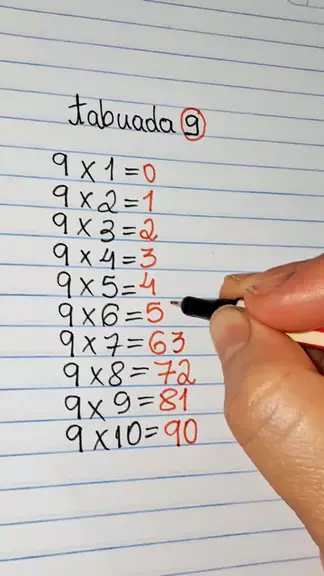 tabuada 9
9 x 1 = 0
9 x 2 = 1
9 x 3 = 2
9 x 4 = 3
9 x 5 = 4
9 x 6 = 5
9 x 7 = 63
9 x 8 = 72
9 x 9 = 81
9 x 10 = 90